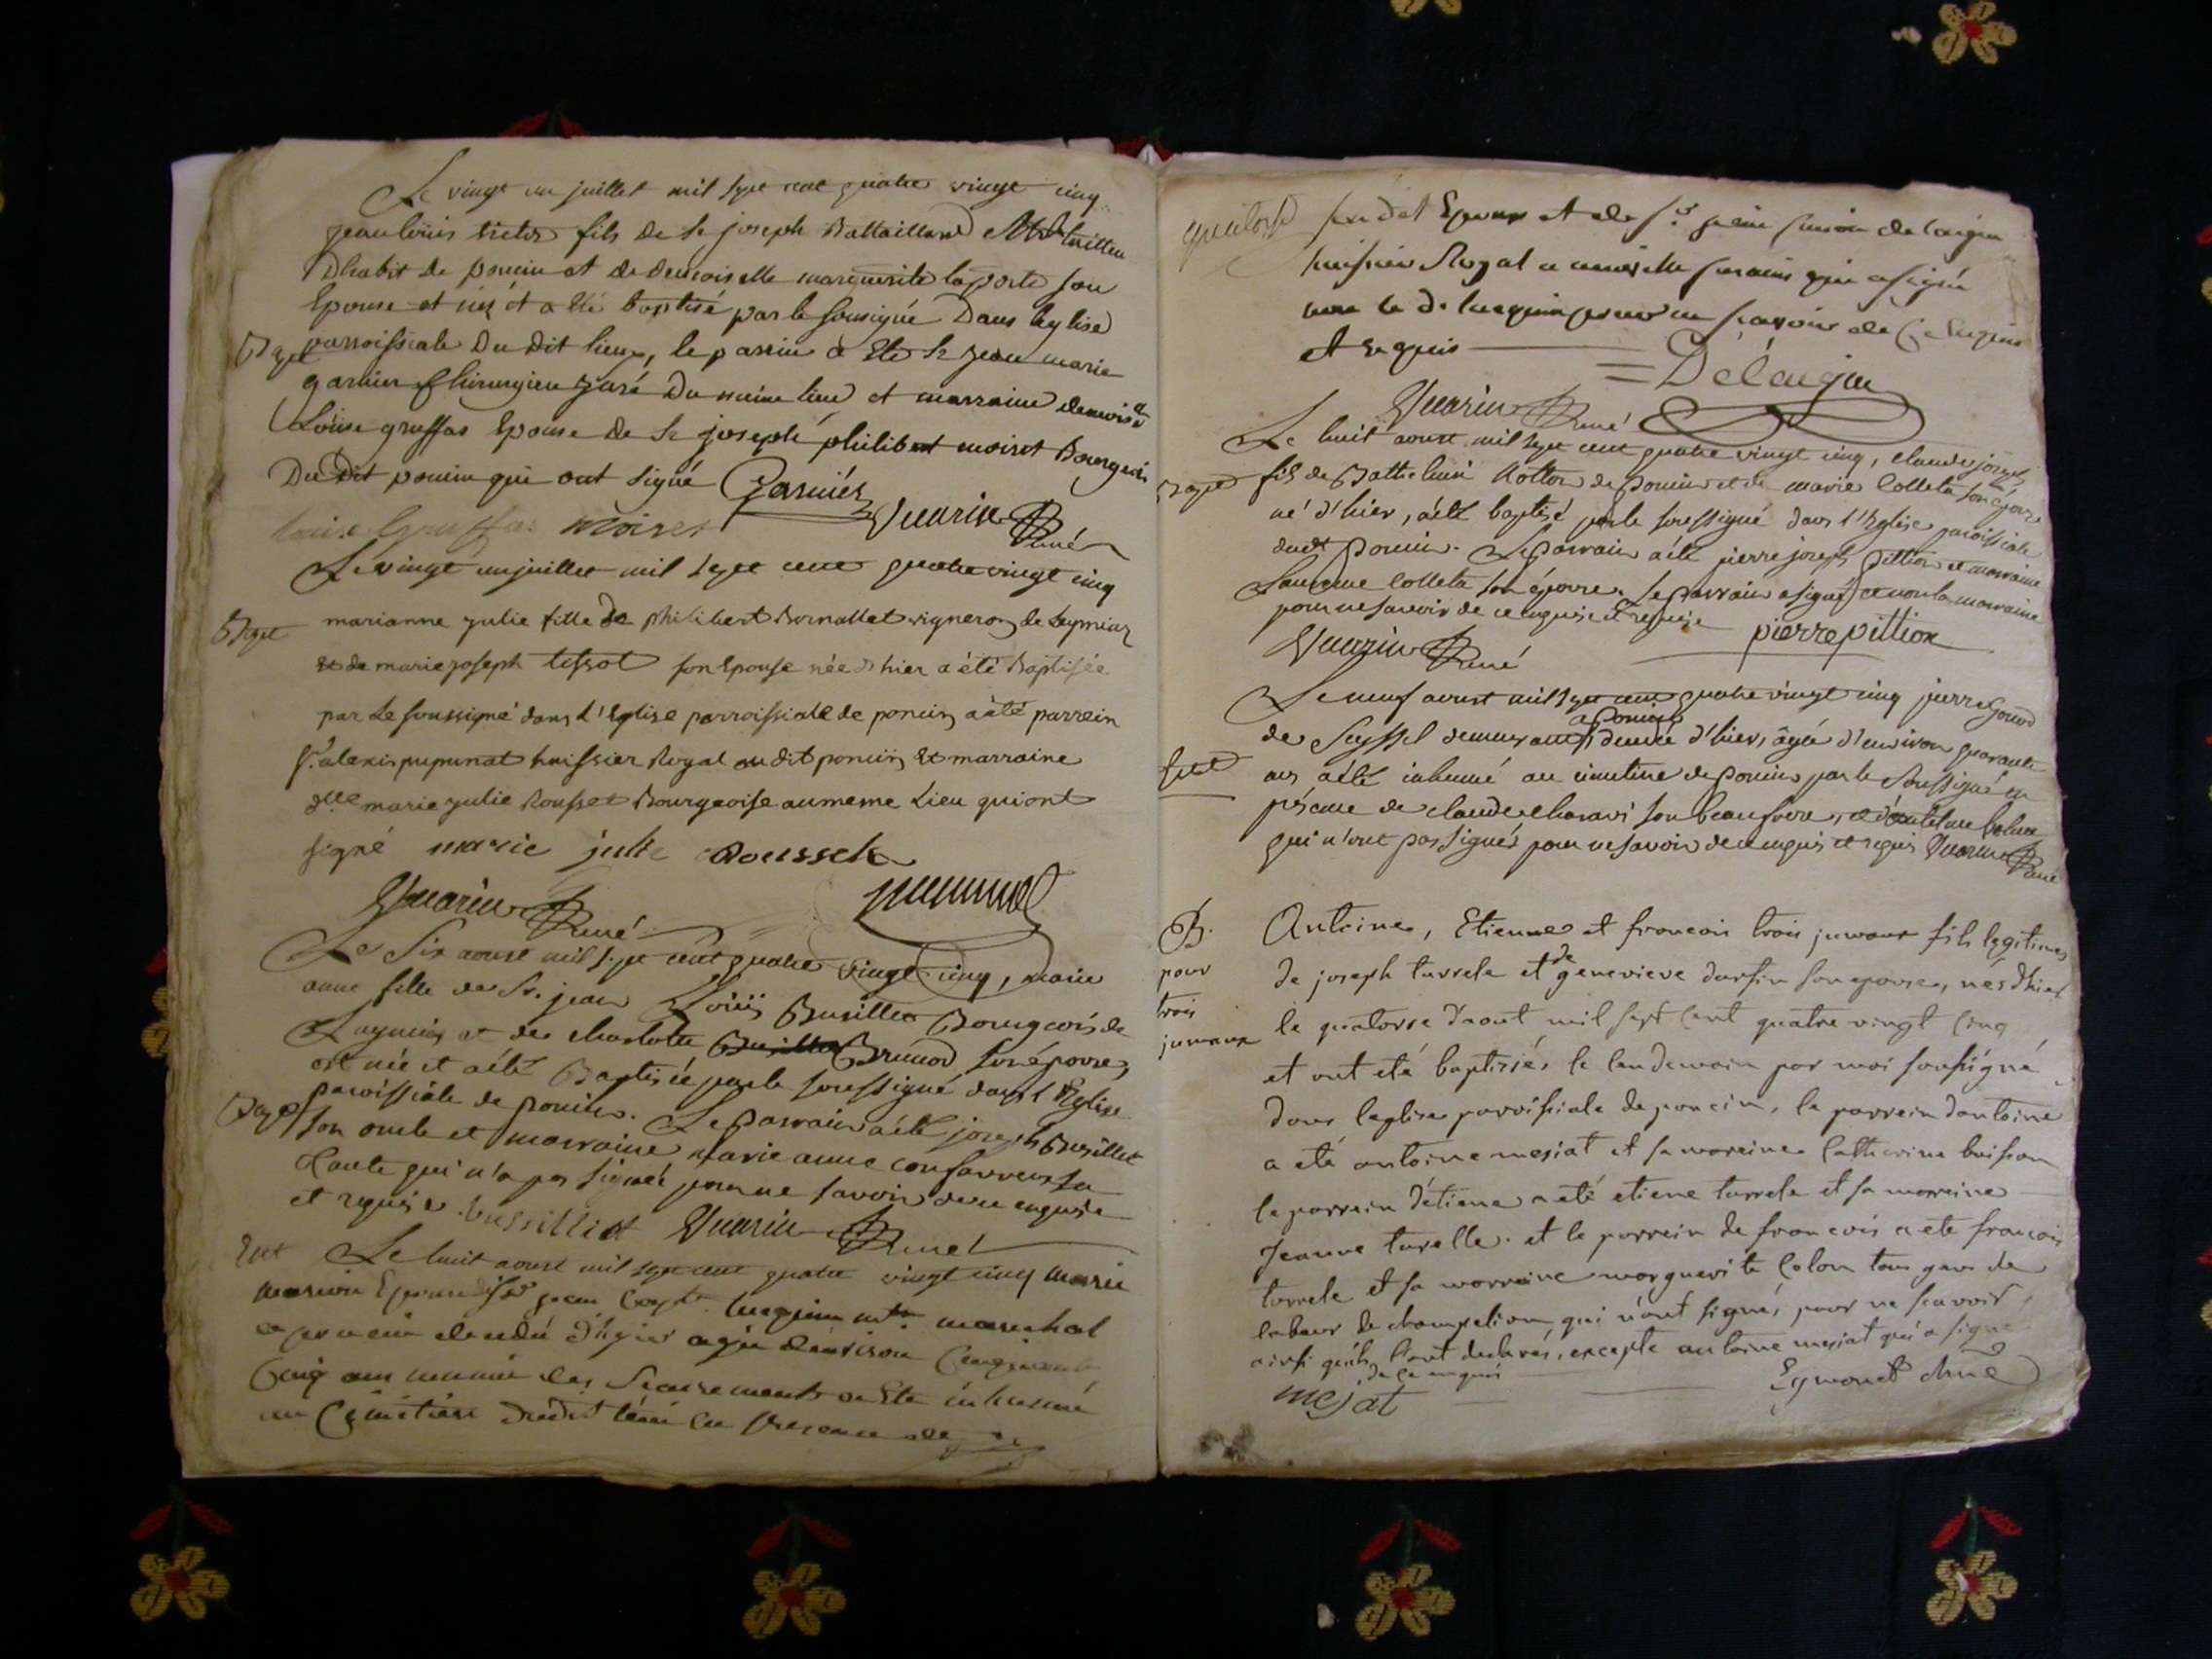 Le vingt un juillet mil sept cent quatre vingt cinq
jean louis victor fils de Sr joseph Battaillard Md tailleur
Dhabit de poncin et de demoiselle marguerite laporte son
Epouse est né et a Eté baptisé par le sousigné Dans leglise
Bapt parroissiale Du dit lieux, le parrin a Eté Sr jean marie
garnier Chirurgien juré Du meme lieu et marraine demoiselle
Louise gruffas Epouse de Sr joseph philibert moiret Bourgeois
Du Dit poncin qui ont signé Garnier
Louise Gruffas moiret Guarin Curé
Le vingt un juillet mil sept cent quatre vingt cinq
Bapt marianne julie fille de philibert Bornallet vigneron de Leymiaz
et de marie joseph tissot son Epouse née d'hier a été Baptisée
par Le soussigné dans L'Eglise parroissiale de poncin a été parrein
Sr alexis pupunat huissier Royal au dit poncin et marraine
dlle marie julie Rousset Bourgeoise au meme Lieu qui ont
signé marie julie Rousset
Guarin Curé
Le Six aoust mil sept cent quatre vingt cinq, marie
anne fille de Sr. jean Loüis Busillet Bourgeois de
et de charlotte Brunod son épouse
est née et a été Baptisée par le soussigné dans l'Eglise
Bapt paroissiale de poncin. Le parrain a été joseph Busillet
son oncle et marraine marie anne sa
tante qui n'a pas signé pour ne savoir de ce enquise
et requise. bussilliet Guarin Curé
Ent Le huit aoust mil sept cent quatre vingt cinq marie
Epouse de Sr jean Bapte marechal
a poncin décédé d'hyier agée d'environ Cinquante
Cinq ans munie des Sacrements a Eté inhumé
au Cimetiere dudit lieu En presence de
quatorze son dit Epoux et de Sr delaigue
huissier Royal a cerdon qui a signé
non le d. pour ne scavoir de Ce Enquis
et Requis Délaigue
Guarin Curé
Le huit aoust mil sept cent quatre vingt cinq, claude joseph
Bapt fils de Barthelemi de Poncin et de marie Colleta son épouse
né d'hier, a été baptisé par le soussigné dans l'Eglise paroissiale
dudt Poncin. Le parrain a été pierre joseph pittion et marraine
Colleta son épouse. Le parrain a signé et non la marraine
pour ne savoir de ce enquise et requise pierre pittion
Guarin Curé
Le neuf aoust mil sept cent quatre vingt cinq pierre
de Seyssel demeurant a Poncin d'hier, âgé d'environ quarante
ans a été inhumé au cimetiere de Poncin par le soussigné en
présence de claude charavi son beaufrere, et
qui n'ont pas signés pour ne savoir de ce enquis et requis Guarin Curé
B.
pour
trois
jumaux
Antoine, Etienne et francois trois jumaux fils legitimes
de joseph turrele et de genevieve son epouse, nés dhier
le quatorze d'aout mil sept cent quatre vingt cinq
et ont eté baptisés le landemain par moi sousigné
dans leglise parroissiale de poncin, le parrein dantoine
a eté antoine mejat et sa marreine Catherine buisson
le parrein d'etiene a eté etiene turrele et sa marreine
Jeanne turelle. et le parrein de francois a ete francois
turrele et sa marreine marguerite Colon tous gens de
labeur de champelion qui n'ont signé, pour ne scavoir
ainsi qu'ils l'ont declarés, de ce enquis excepte antoine mejat qui a signé
mejat Eymonet